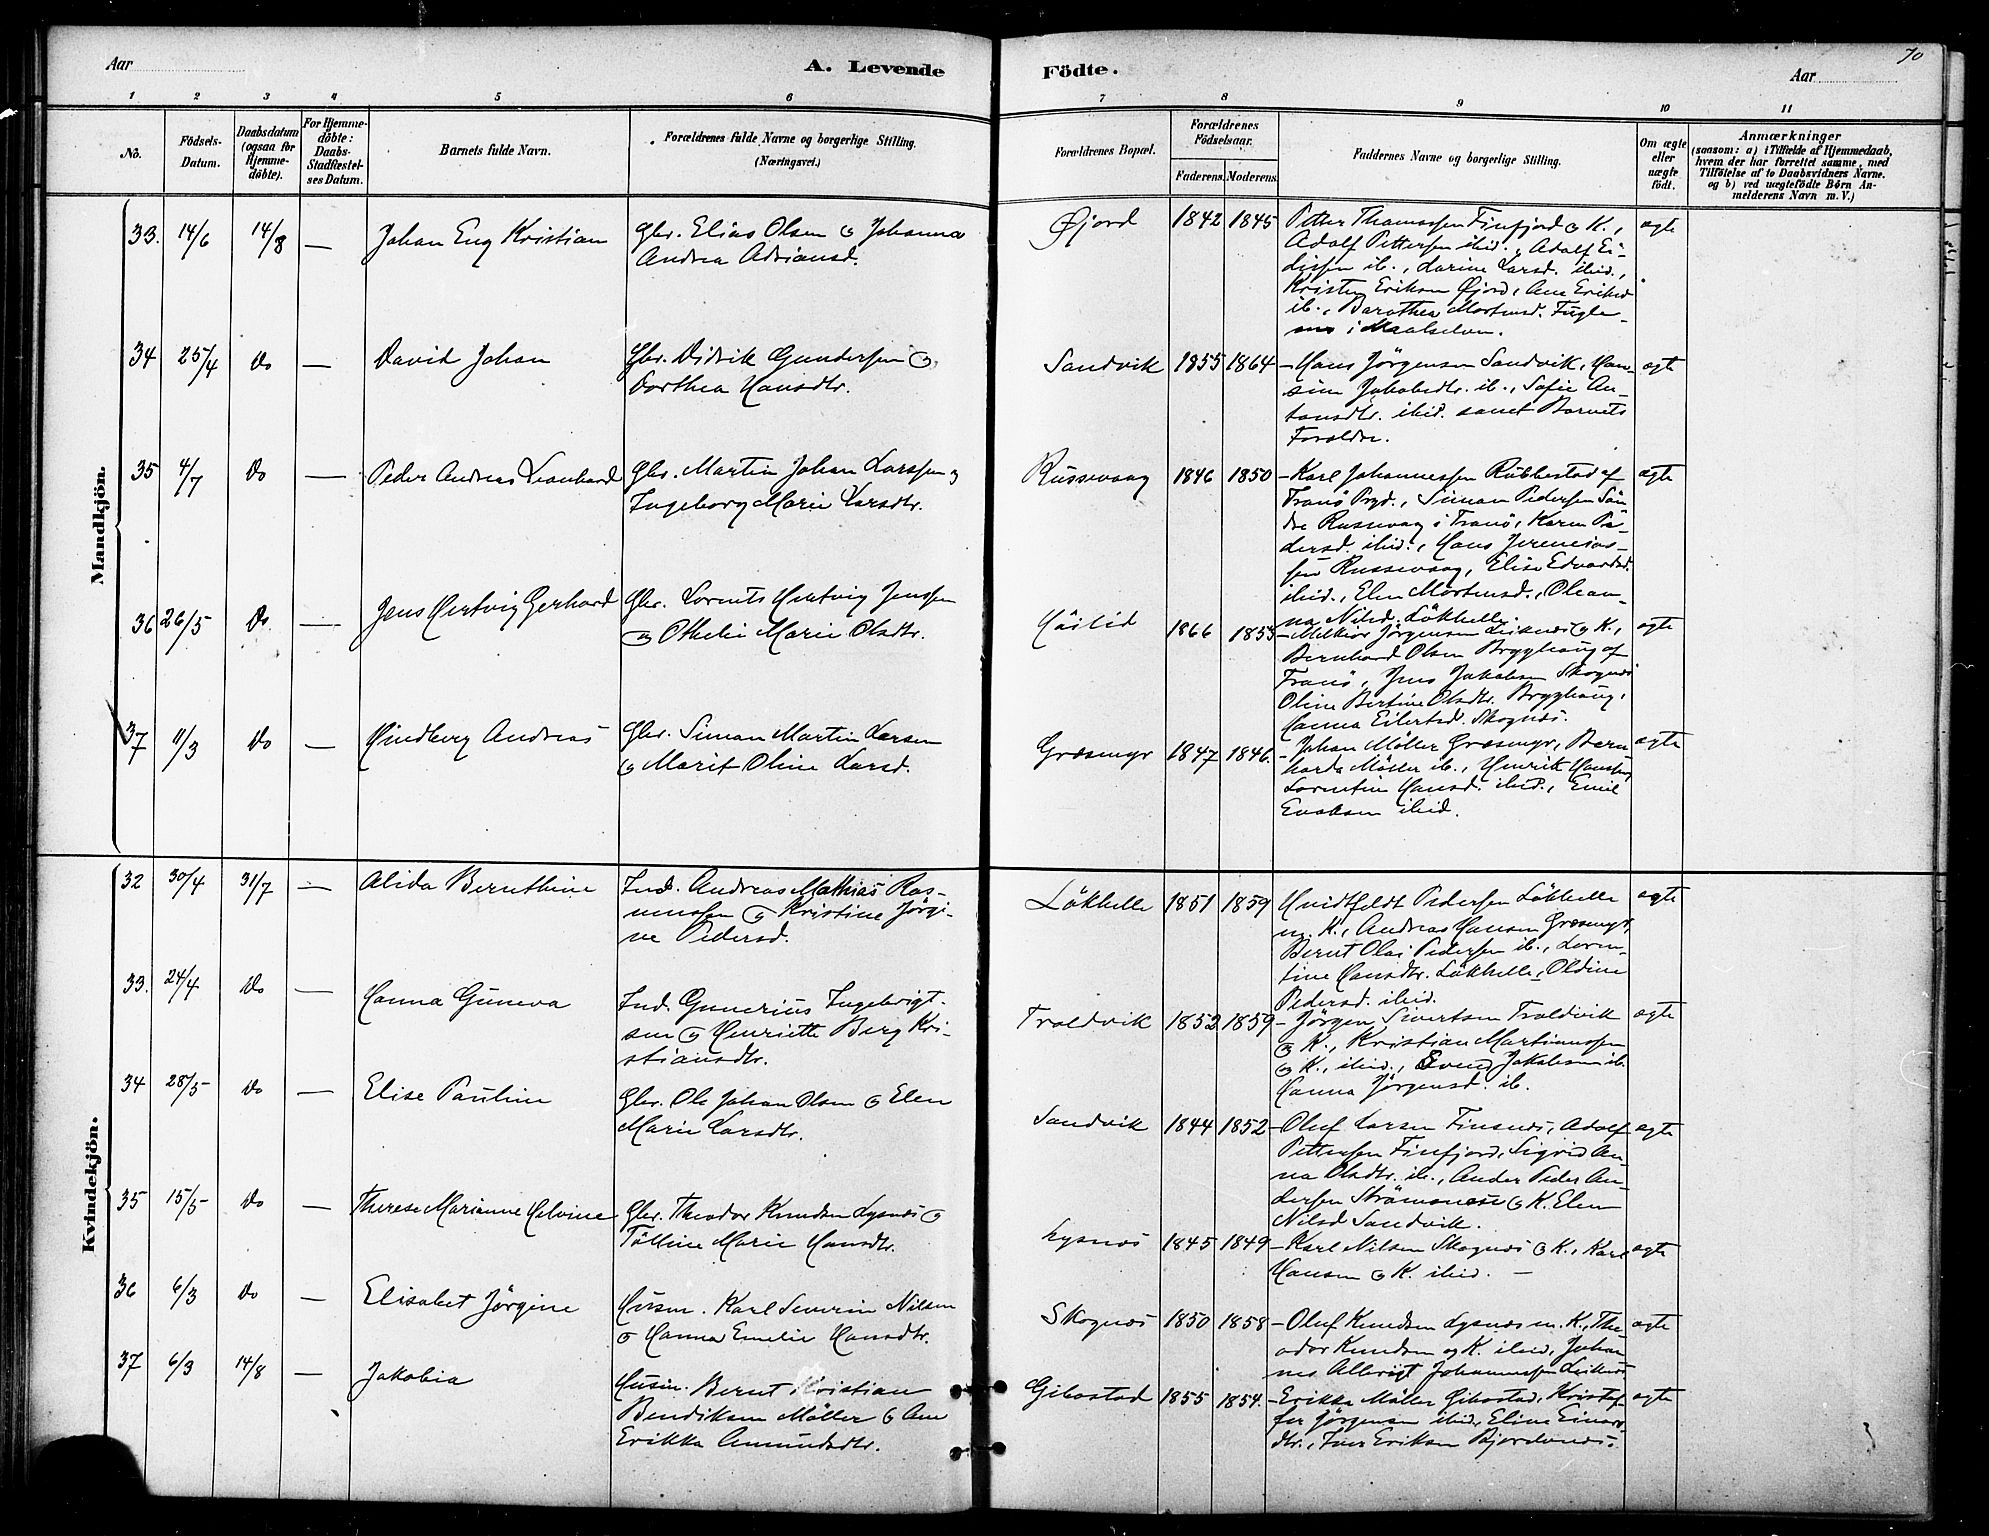 70
Aar
A. Levende
Födte.
Aar
1 2 3 4 5 6 7 8 9 10 11
No.
Födsels-
Datum.
Daabsdatum
(ogsaa for
Hjemme-
döbte).
For Hjemme-
döbte:
Daabs-
Stadfæstel-
ses Datum.
Barnets fulde Navn.
Forældrenes fulde Navne og borgerlige Stilling.
(Næringsvei.)
Forældrenes Bopæl.
Forældrenes
Födselsaar.
Faderens. Moderens.
Faddernes Navne og borgerlige Stilling.
Om ægte
eller
uægte
födt.
Anmærkninger
(saasom: a) i Tilfælde af Hjemmedaab,
hvem der har forrettet samme, med
Tilföielse af to Daabsvidners Navne.
og b) ved uægtefödte Börn An-
melderens Navn m. V.)
Mandkjön.
33. 14/6 14/8 — Johan Eug Kristian
Gbr. Elias Olsen og Johanna
Andrea Adriansd.
Øjord 1842 1845
Petter Thomassen Finfjord og K.,
Adolf Pettersen ibid., Adolf Ei-
dissen ib., Larine Larsd. ibid.,
Kristen Eriksen Øjord, Ane Eriksd
ib., Barothea Mortensd. Fugle-
næs i Maalselven.
ægte
34 25/4 Do — David Johan
Gbr. Didrik Gundersen og
Dorthea Hansdtr.
Sandvik 1855 1864
— Hans Jörgensen Sandvik, Han-
sine Jakobsdtr. ib., Sofie An-
tonsdtr. ibid. samt Barnets
Forældre.
ægte
35 4/7 Do — Peder Andreas Leonhard
Gbr. Martin Johan Larssen og
Ingeborg Marie Larsdtr.
Russevaag 1846 1850
— Karl Johannessen Rubbestad af
Tranö Prgd., Simon Pedersen Sön-
dre Russevaag i Tranö, Karen Pe-
dersd. ibid., Hans Jeremias-
sen Russevaag, Elise Edvardsd.
ibid., Elen Mortensd., Olean-
na Nilsd. Lökhelle.
ægte
36 26/5 Do — Jens Hertvig Gerhard
Gbr. Lornts Hertvig Jenssen
og Othelie Marie Olsdtr.
Haslid 1866 1855
— Melkior Jörgensen Leiknes og K.,
Bernhard Olsen Brygghaug af
Tranö, Jens Jakobsen Skognes
Oline Bertine Olsdtr. Brygghaug,
Hanna Eilertsd. Skognæs.
ægte
37 11/3 Do — Hindberg Andreas
Gbr. Simon Martin Larsen
og Marit Oline Larsd.
Græsmyr 1847 1846.
— Johan Möller Græsmyr, Bern
harda Möller ib., Henrik Hansen,
Lorentine Hansd. ibid., Emil
Enoksen ibid.
ægte
Kvindekjön.
32 30/4 31/7 — Alida Bernthine
Ind. Andreas Mathias Ras-
mussen og Kristine Jörgi-
ne Pedersd.
Lökhelle 1851 1859
Hvidtfeldt Pedersen Lökhelle
m. K., Andreas Hansen Græsmyr,
Bernt Olai Pedersen ib., Loren-
tine Hansdtr. Lökhelle, Oldine
Pedersd. ibid.
ægte
33. 24/4 Do — Hanna Guneva
Ind. Gunerius Ingebrigt-
sen og Henriette Berg Kri-
stiansdtr.
Troldvik 1852 1859
— Jörgen Sivertsen Troldvik
og K., Kristian Martinussen
og K., ibid., Svend Jakobsen ib.
Hanna Jörgensd. ib.
ægte
34 28/5 Do — Elise Pauline
Gbr. Ole Johan Olsen og Elen
Marie Larsdtr.
Sandvik 1844 1852
— Oluf Larsen Finsnæs, Adolf
Pettersen Finfjord, Sigrid An-
na Olsdtr. ib., Ander Peder An-
dersen Strömsnes og K. Elen
Nilsd Sandvik.
ægte
35 15/5 Do — Therese Marianne Helvine
Gbr. Theodor Knudsen Lysnæs og
Tölline Marie Hansdtr.
Lysnæs 1845 1849
— Karl Nilsen Skognæs og K., Karl
Hansen og K. ibid. —
ægte
36 6/3 Do — Elisabet Jörgine
Husm. Karl Severin Nilsen
og Hanna Emelie Hansdtr.
Skognæs 1850 1858
— Oluf Knudsen Lysnæs m. K., The-
odor Knudsen og K. ibid., Johan
nes Albrigt Johannessen Leiknes
ægte
37 6/3 14/8 — Jakobia
Husm. Bernt Kristian
Bendiksen Möller og Ane
Erikka Amundsdtr.
Gibostad 1855 1854.
— Erikka Möller Gibostad, Kristof-
fer Jörgensen ibid, Eline Einars
dtr., Iver Eriksen Bjorelvnes.
ægte